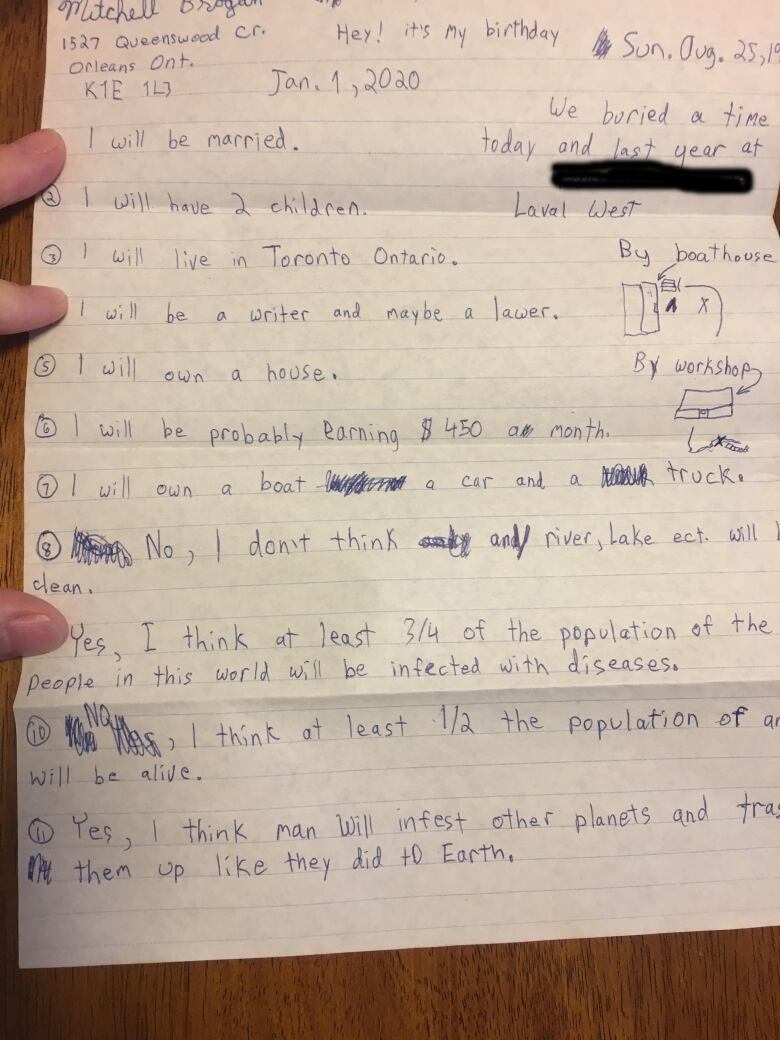 Mitchell Brogan
1527 Queenswood Cr.
Orleans Ont.
K1E 1L3
Hey! it's my birthday
Sun. Aug. 25, 19
Jan. 1, 2020
We buried a time
today and last year at
Laval West
I will be married.
② I will have 2 children.
③ I will live in Toronto Ontario.
By boathouse
X
I will be a writer and maybe a lawer.
⑤ I will own a house.
By workshop
⑥ I will be probably earning $ 450 a month.
⑦ I will own a boat a car and a truck.
⑧ No, I don't think and/ river, Lake ect. will
clean.
Yes, I think at least 3/4 of the population of the
people in this world will be infected with diseases.
⑩ NO, I think at least 1/2 the population of
will be alive.
⑪ Yes, I think man will infest other planets and tras
them up like they did to Earth.